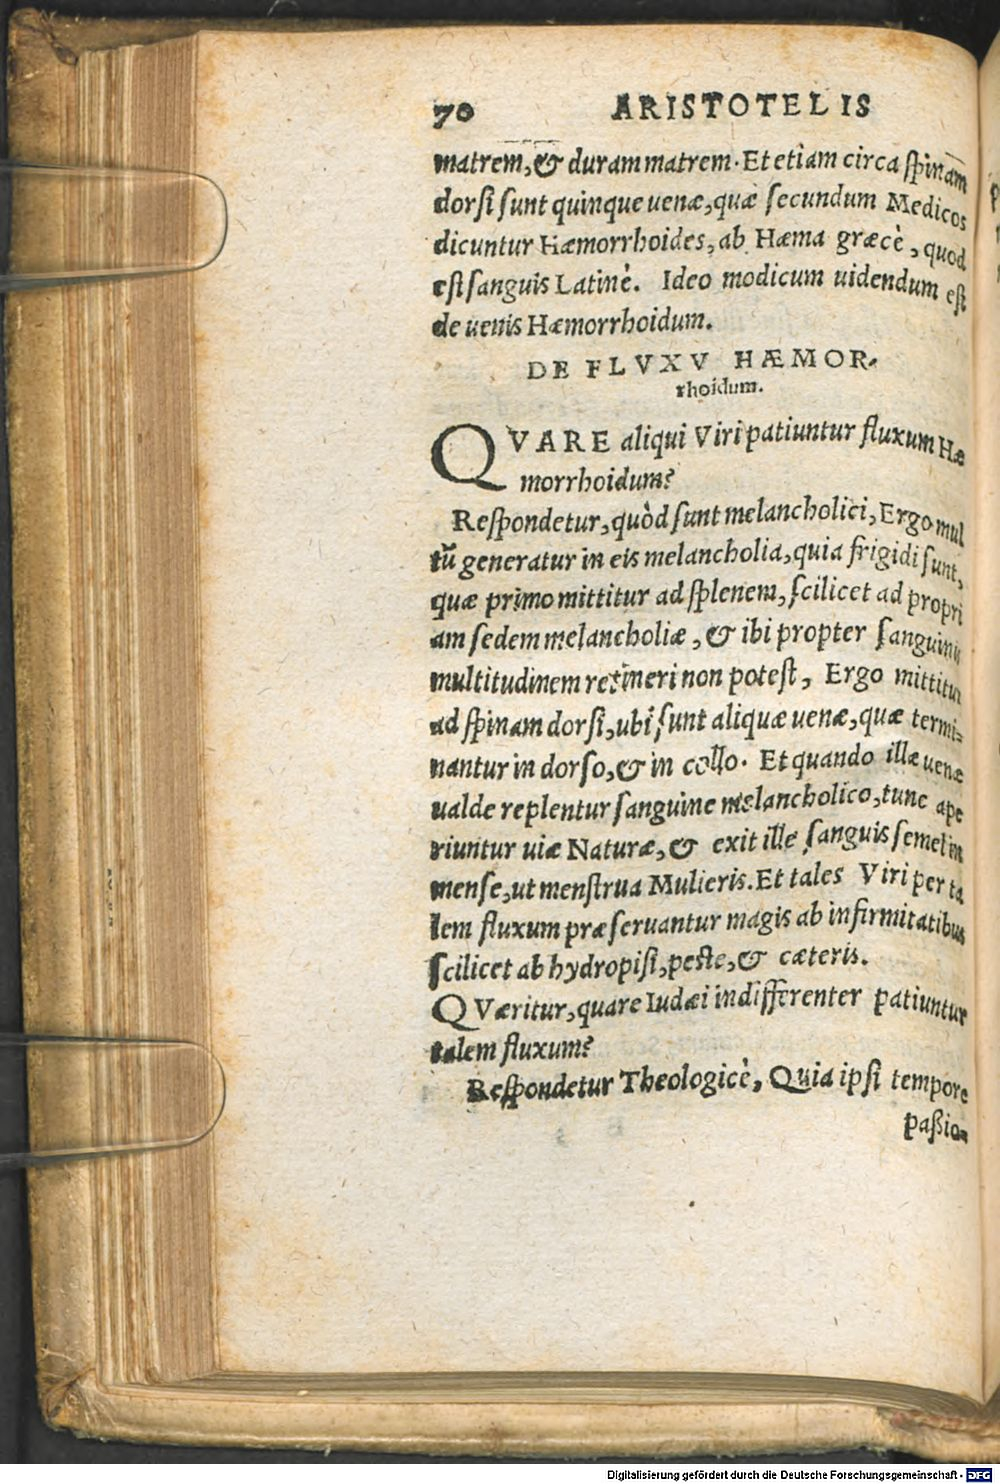 70 ARISTOTELIS
matrem,& duram matrem. Et etiam circa ſpinam
dorſi ſunt quinque uenæ,quæ ſecundum Medicos
dicuntur Hæmorrhoides, ab Hæma græcè, quod
eſt ſanguis Latinè. Ideo modicum uidendum eſt
de uenis Hæmorrhoidum.
DE FLVXV HÆMOR-
rhoidum.
QVARE aliqui Viri patiuntur fluxum Hæ
morrhoidum?
Reſpondetur,quòd ſunt melancholici, Ergo mul
tũ generatur in eis melancholia,quia frigidi ſunt,
quæ primo mittitur ad ſplenem, ſcilicet ad propri
am ſedem melancholiæ, & ibi propter ſanguinis
multitudinem retineri non poteſt, Ergo mittitur
ad ſpinam dorſi,ubi ſunt aliquæ uenæ,quæ termi-
nantur in dorſo,& in collo. Et quando illæ uenæ
ualde replentur ſanguine melancholico,tunc ape
riuntur uiæ Naturæ,& exit ille ſanguis ſemel in
menſe,ut menſtrua Mulieris. Et tales Viri per ta
lem fluxum præſeruantur magis ab infirmitatibus
ſcilicet ab hydropiſi,peſte,& cæteris.
QVæritur,quare Iudæi indifferenter patiuntur
talem fluxum?
Reſpondetur Theologicè, Quia ipſi tempore
paßio-
Digitalisierung gefördert durch die Deutsche Forschungsgemeinschaft - DFG